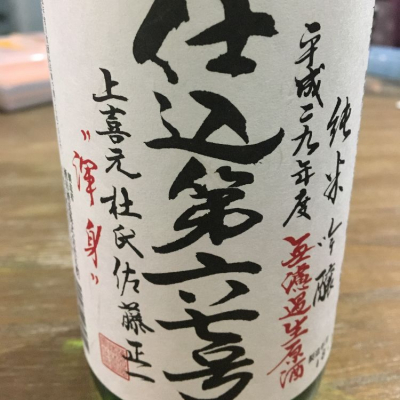 純米吟醸
無濾過生原酒
平成二九年度
仕込第六七号
上喜元杜氏佐藤正一
"渾身"